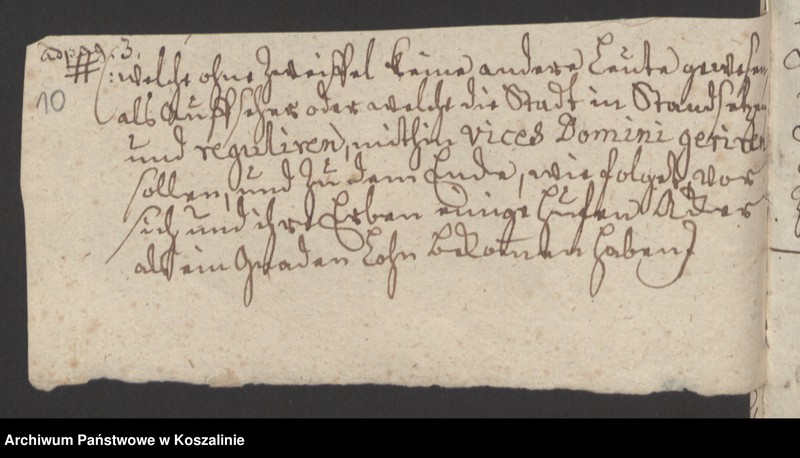 ad pag. 3.
# (: welche ohne Zweiffel keine andere Leute gewesen
10
als Auffseher oder welche die Stadt in Stand setzen
und reguliren, mithin vices Domini geriren
sollen, und zu dem Ende, wie folget, vor
sich und ihre Erben einige Hufen Acker
als ein Gnaden Lohn bekommen haben)
Archiwum Państwowe w Koszalinie